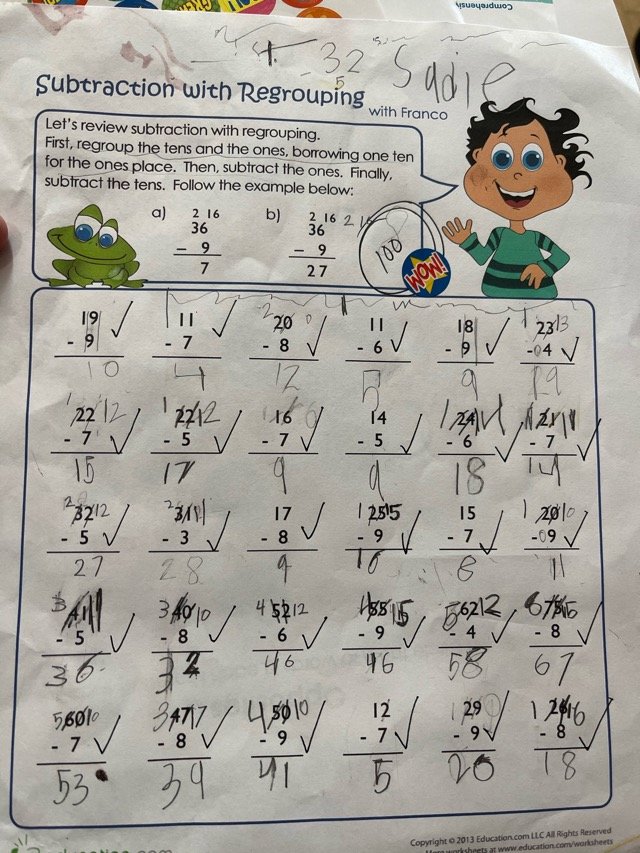 Comprehensi
32 Sadie
5
Subtraction with Regrouping
with Franco
Let's review subtraction with regrouping.
First, regroup the tens and the ones, borrowing one ten
for the ones place. Then, subtract the ones. Finally,
subtract the tens. Follow the example below:
a) 2 16 b) 2 16
36 36
- 9 - 9
7 27
100
WOW!
19 11 20 11 18 23 13
- 9 - 7 - 8 - 6 - 9 - 04
10 4 12 5 9 19
1 22 12 1 22 12 16 14 1 24 14 1 21 11
- 7 - 5 - 7 - 5 - 6 - 7
15 17 9 9 18 14
2 32 12 2 31 11 17 1 25 15 15 1 20 10
- 5 - 3 - 8 - 9 - 7 - 09
27 28 9 16 8 11
3 41 11 3 40 10 4 52 12 4 55 15 5 62 12 6 75 15
- 5 - 8 - 6 - 9 - 4 - 8
36 32 46 46 58 67
5 60 10 3 47 17 4 50 10 12 29 1 26 16
- 7 - 8 - 9 - 7 - 9 - 8
53 39 41 5 20 18
Copyright © 2013 Education.com LLC All Rights Reserved
More worksheets at www.education.com/worksheets